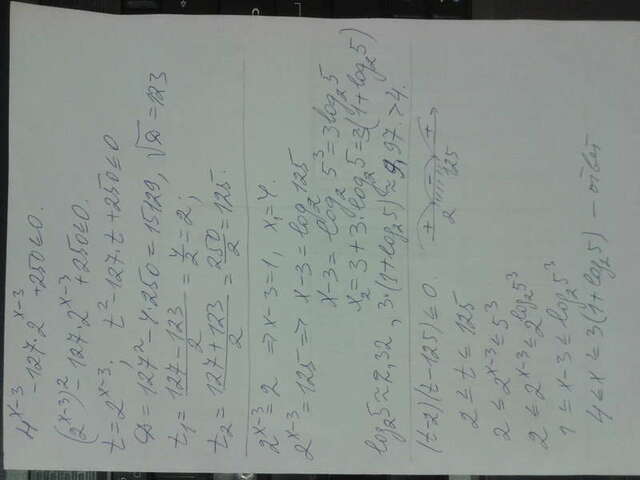 4^{x-3} - 127·2^{x-3} + 250 ≤ 0.
(2^{x-3})^2 - 127·2^{x-3} + 250 ≤ 0.
t = 2^{x-3}. t^2 - 127·t + 250 ≤ 0
D = 127^2 - 4·250 = 15129, √D = 123
t_1 = (127 - 123)/2 = 4/2 = 2;
t_2 = (127 + 123)/2 = 250/2 = 125.
2^{x-3} = 2 => x-3 = 1, x_1 = 4.
2^{x-3} = 125 => x-3 = log_2 125
x-3 = log_2 5^3 = 3log_2 5
x_2 = 3 + 3·log_2 5 = 3(1 + log_2 5)
log_2 5 ≈ 2,32, 3·(1 + log_2 5) ≈ 9,97 > 4.
(t-2)(t-125) ≤ 0. + 2 - 125 +
2 ≤ t ≤ 125
2 ≤ 2^{x-3} ≤ 5^3
2 ≤ 2^{x-3} ≤ 2^{log_2 5^3}
1 ≤ x-3 ≤ log_2 5^3
4 ≤ x ≤ 3(1 + log_2 5) - ответ